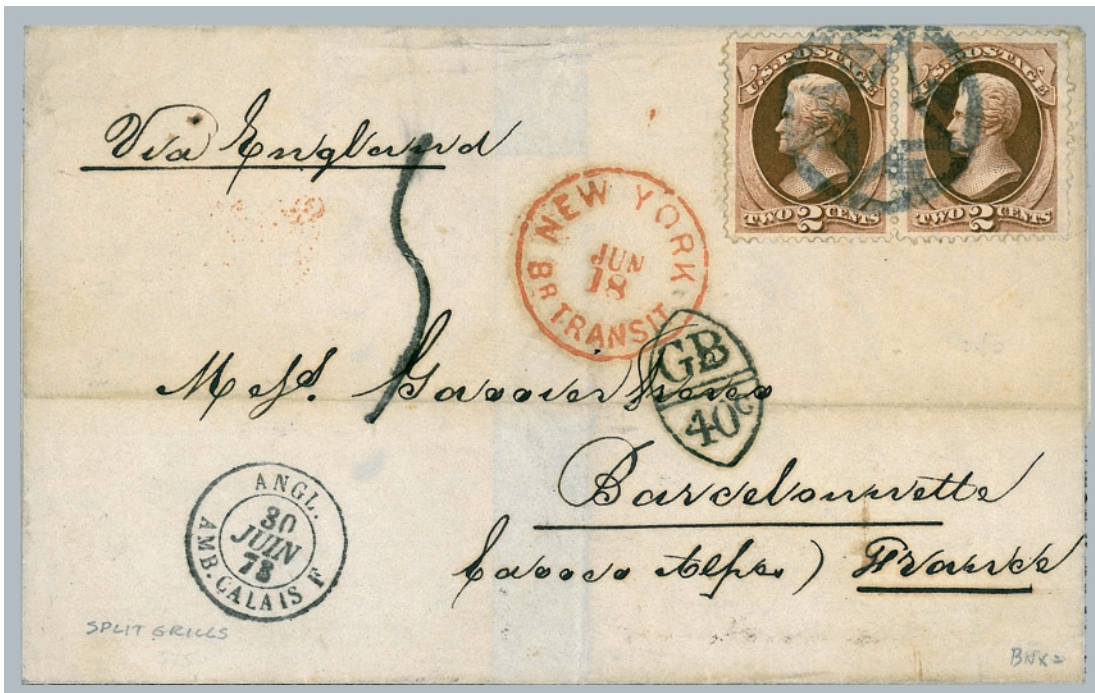 U.S. POSTAGE
TWO 2 CENTS
U.S. POSTAGE
TWO 2 CENTS
Via England
5
NEW YORK
JUN
18
BR TRANSIT
GB
40c
Barcelonnette
Alpes) France
ANGL.
30
JUIN
73
AMB. CALAIS F
SPLIT GRILLS